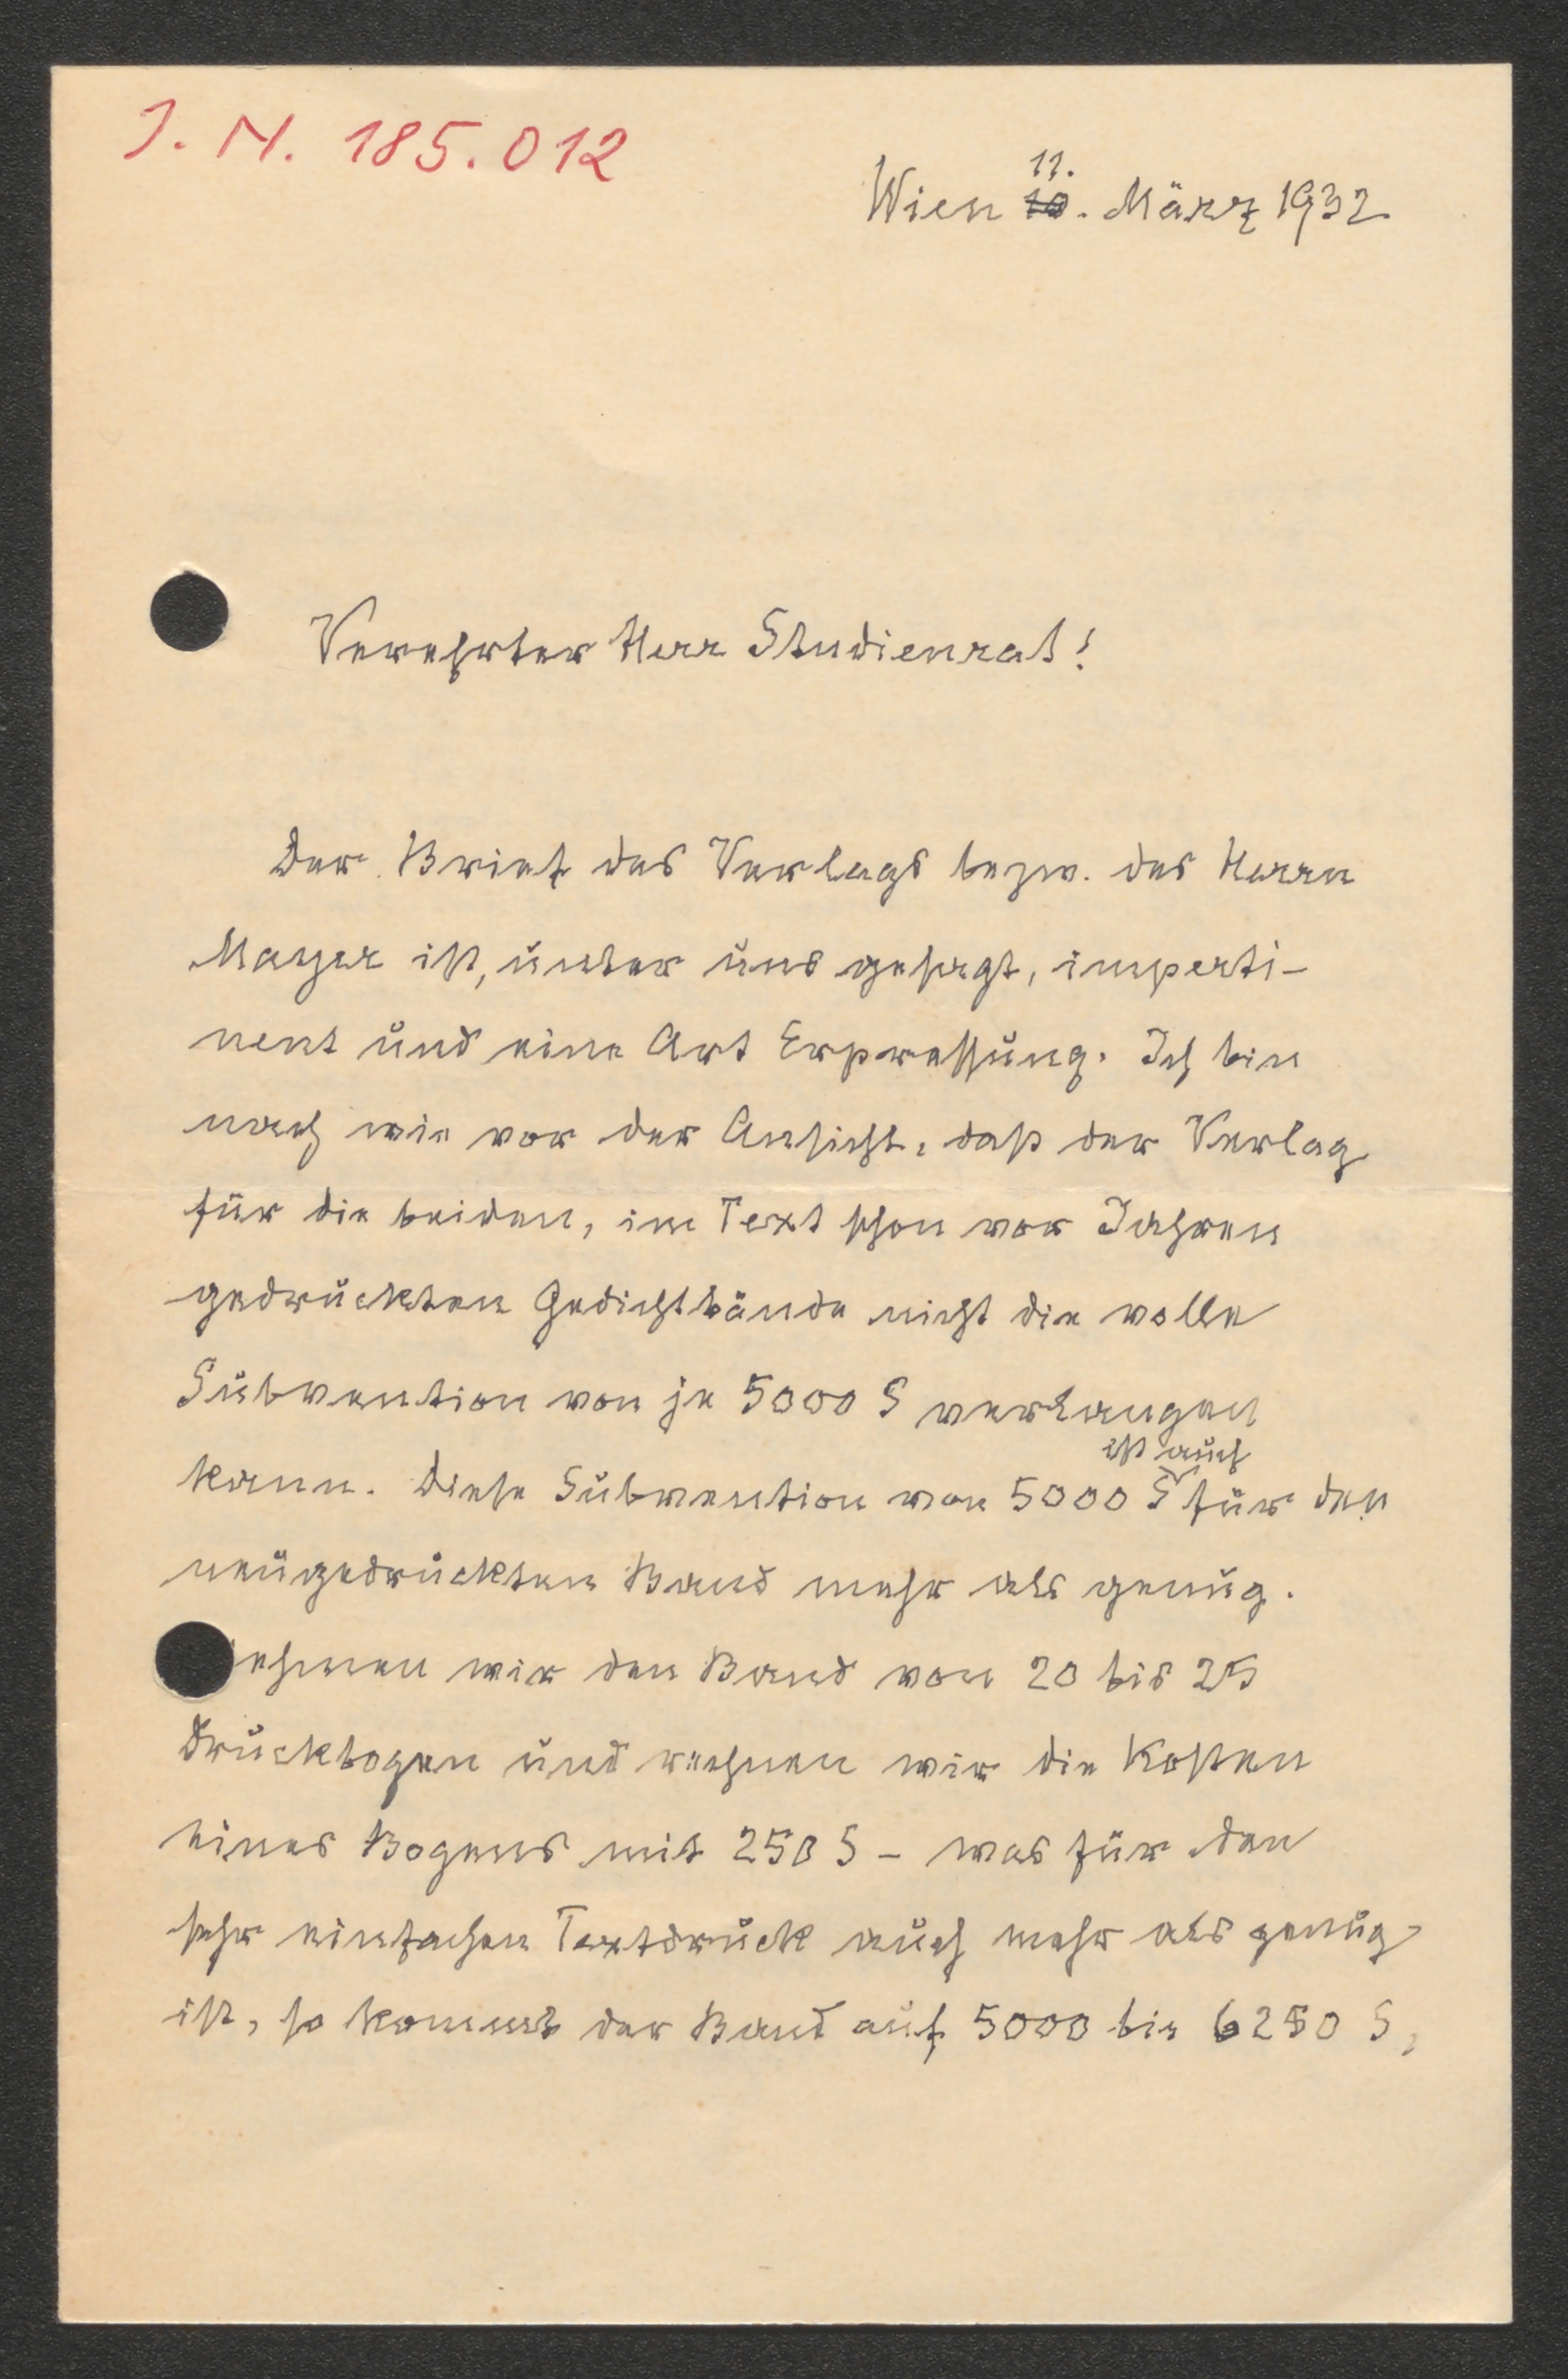 J. N. 185.012
11.
Wien 10. März 1932
Verehrter Herr Studienrat!
Der Brief des Verlags bezw. des Herrn
Mayer ist, unter uns gesagt, imperti-
nent und eine Art Erpressung. Ich bin
nach wie vor der Ansicht, daß der Verlag
für die beiden, im Text schon vor Jahren
gedruckten Gedichtbände nicht die volle
Subvention von je 5000 S verlangen
kann. Diese Subvention von 5000 S ist auch für den
neugedruckten Band mehr als genug.
Nehmen wir den Band von 20 bis 25
Druckbogen und rechnen wir die Kosten
eines Bogens mit 250 S – was für den
sehr einfachen Textdruck auch mehr als genug
ist, so kommt der Band auf 5000 bis 6250 S,